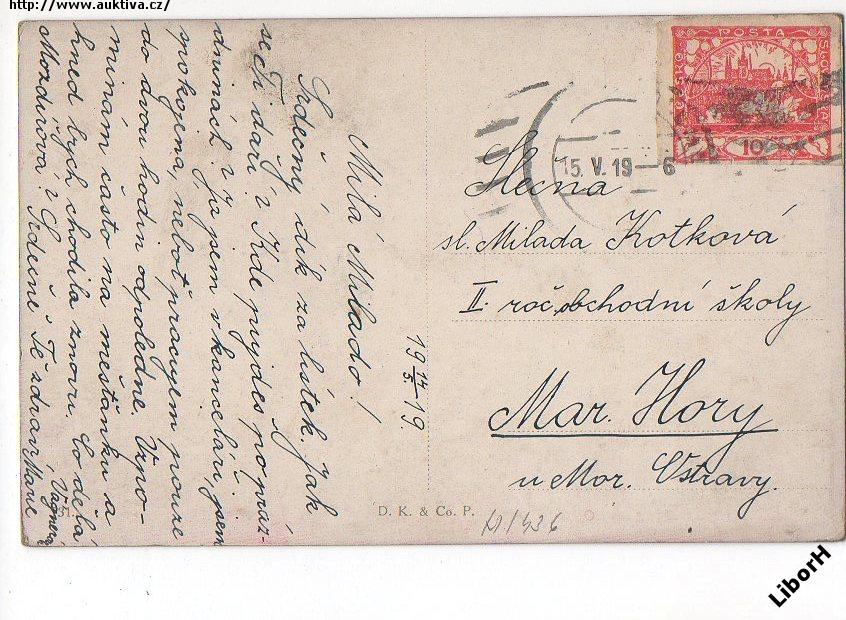 http://www.auktiva.cz/
POŠTA
ČESKO
SLOVENSKÁ
10
15. V. 19 – 6
Slečna
sl. Milada Kotková
II. roč. obchodní školy
Mar. Hory
u Mor. Ostravy.
19 14/5 19.
Milá Milado!
Srdečný dík za lístek. Jak
se Ti daří? Kde půjdeš po práz-
dninách? Ja jsem v kanceláři, jsem
spokojena, neboť pracujem pouze
do dvou hodin odpoledne. Vzpo-
mínám často na měšťanku a
hned bych chodila znovu. Co dělá
Mozdřeňová? Srdečně Tě zdraví Marie
Vágnerová
31.
D. K. & Co. P.
LiborH